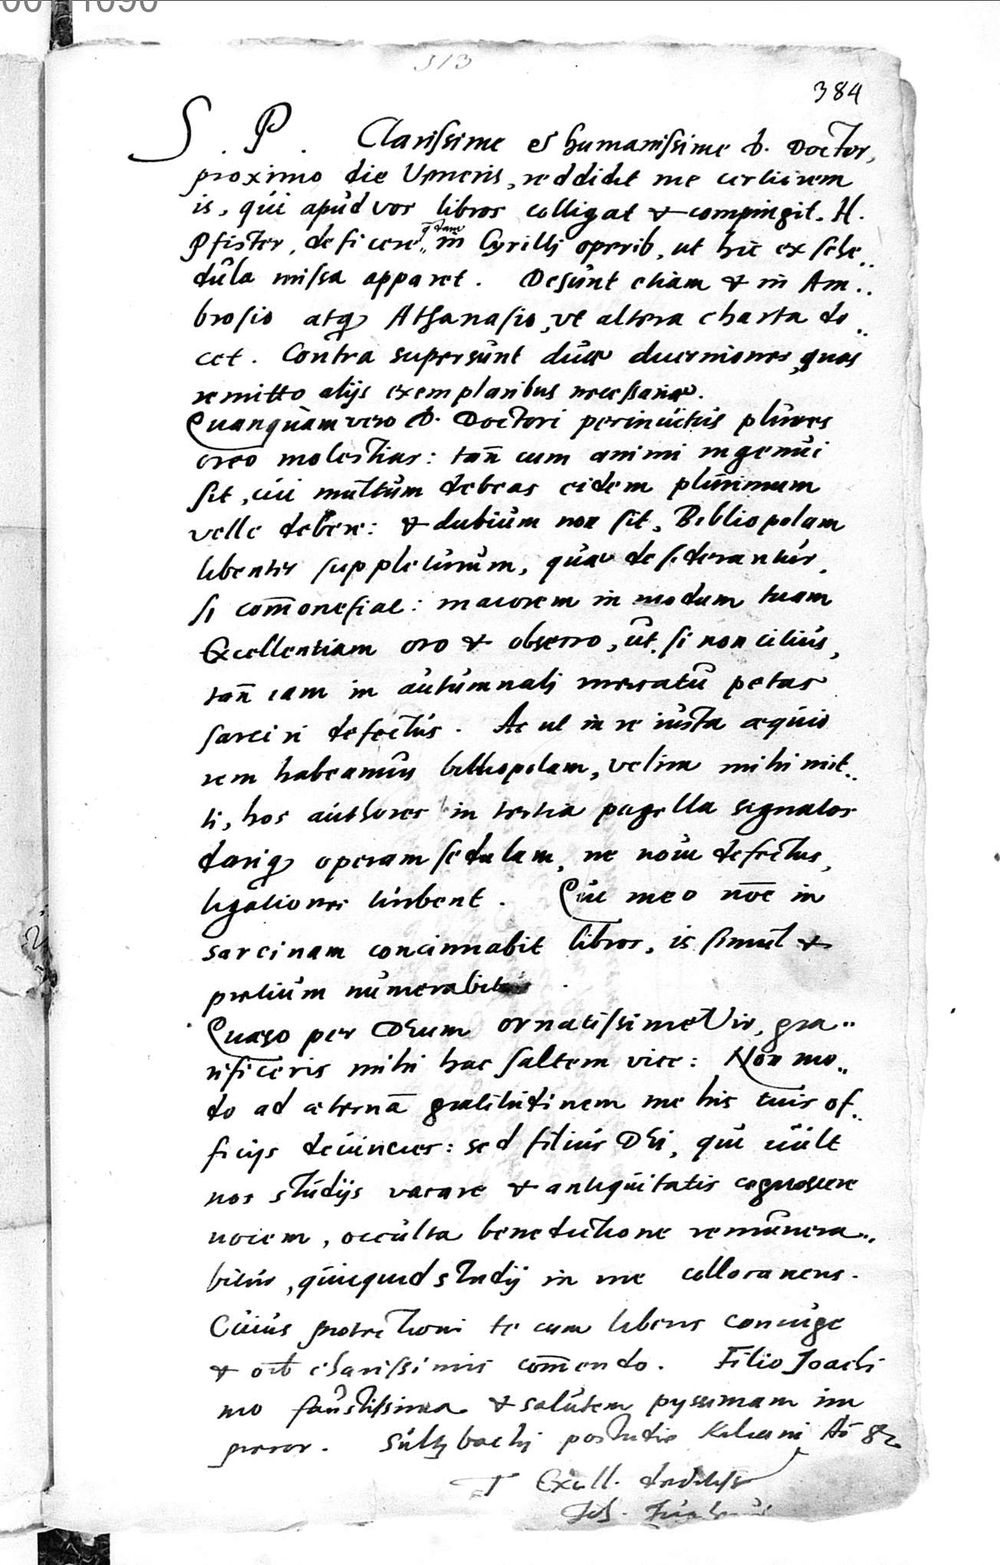 513
384
S. P. Clarissime et humanissime D. Doctor,
proximo die Veneris, reddidit me certiorem
is, qui apud vos libros colligat & compingit. H.
Pfister, deficere quaedam in Cyrilli operib, ut hic ex sche..
dula missa apparet. Desunt etiam & in Am..
brosio atq Athanasio, vt altera charta do..
cet. Contra supersunt duae duerniones, quas
remitto alijs exemplaribus necessarias.
Quanquàm vero D. Doctori perinuitus plures
creo molestias: tam̄ cum animi ingenui
sit, cui multum debeas eidem plurimum
velle debere: & dubium non sit, Bibliopolam
libenter suppleturum, quae desiderantur,
si com̄onefiat: maiorem in modum tuam
Excellentiam oro & obsecro, ut, si non citius,
tam̄ iam in autumnali mercatu petas
sarciri defectus. Ac ut in re iusta aequio
rem habeamus bibliopolam, velim mihi mit..
ti, hos authores in tertia pagella signatos
dariq operam sedulam, ne noui defectus,
ligationes turbent. Qui meo noe in
sarcinam concinnabit libros, is simul &
pretium numerabit.
Quaeso per Deum ornatissime Vir, gra..
tificeris mihi hac saltem vice: Non mo..
do ad aeternā gratitudinem me his tuis of..
ficijs deuincies: sed filius Dei, qui uult
nos studijs vacare & antiquitatis cognoscere
uocem, occulta benedictione remunera..
bitur, quicquid studij in me collocaueris.
Cuius protectioni te cum liberis coniuge
& oīb charissimis com̄endo. Filio Joachi
mo faustissima & salutem pijssimam im
precor. Sultzbachij postridie Kiliani Aō 82
T Excell. deditiss
Joh.